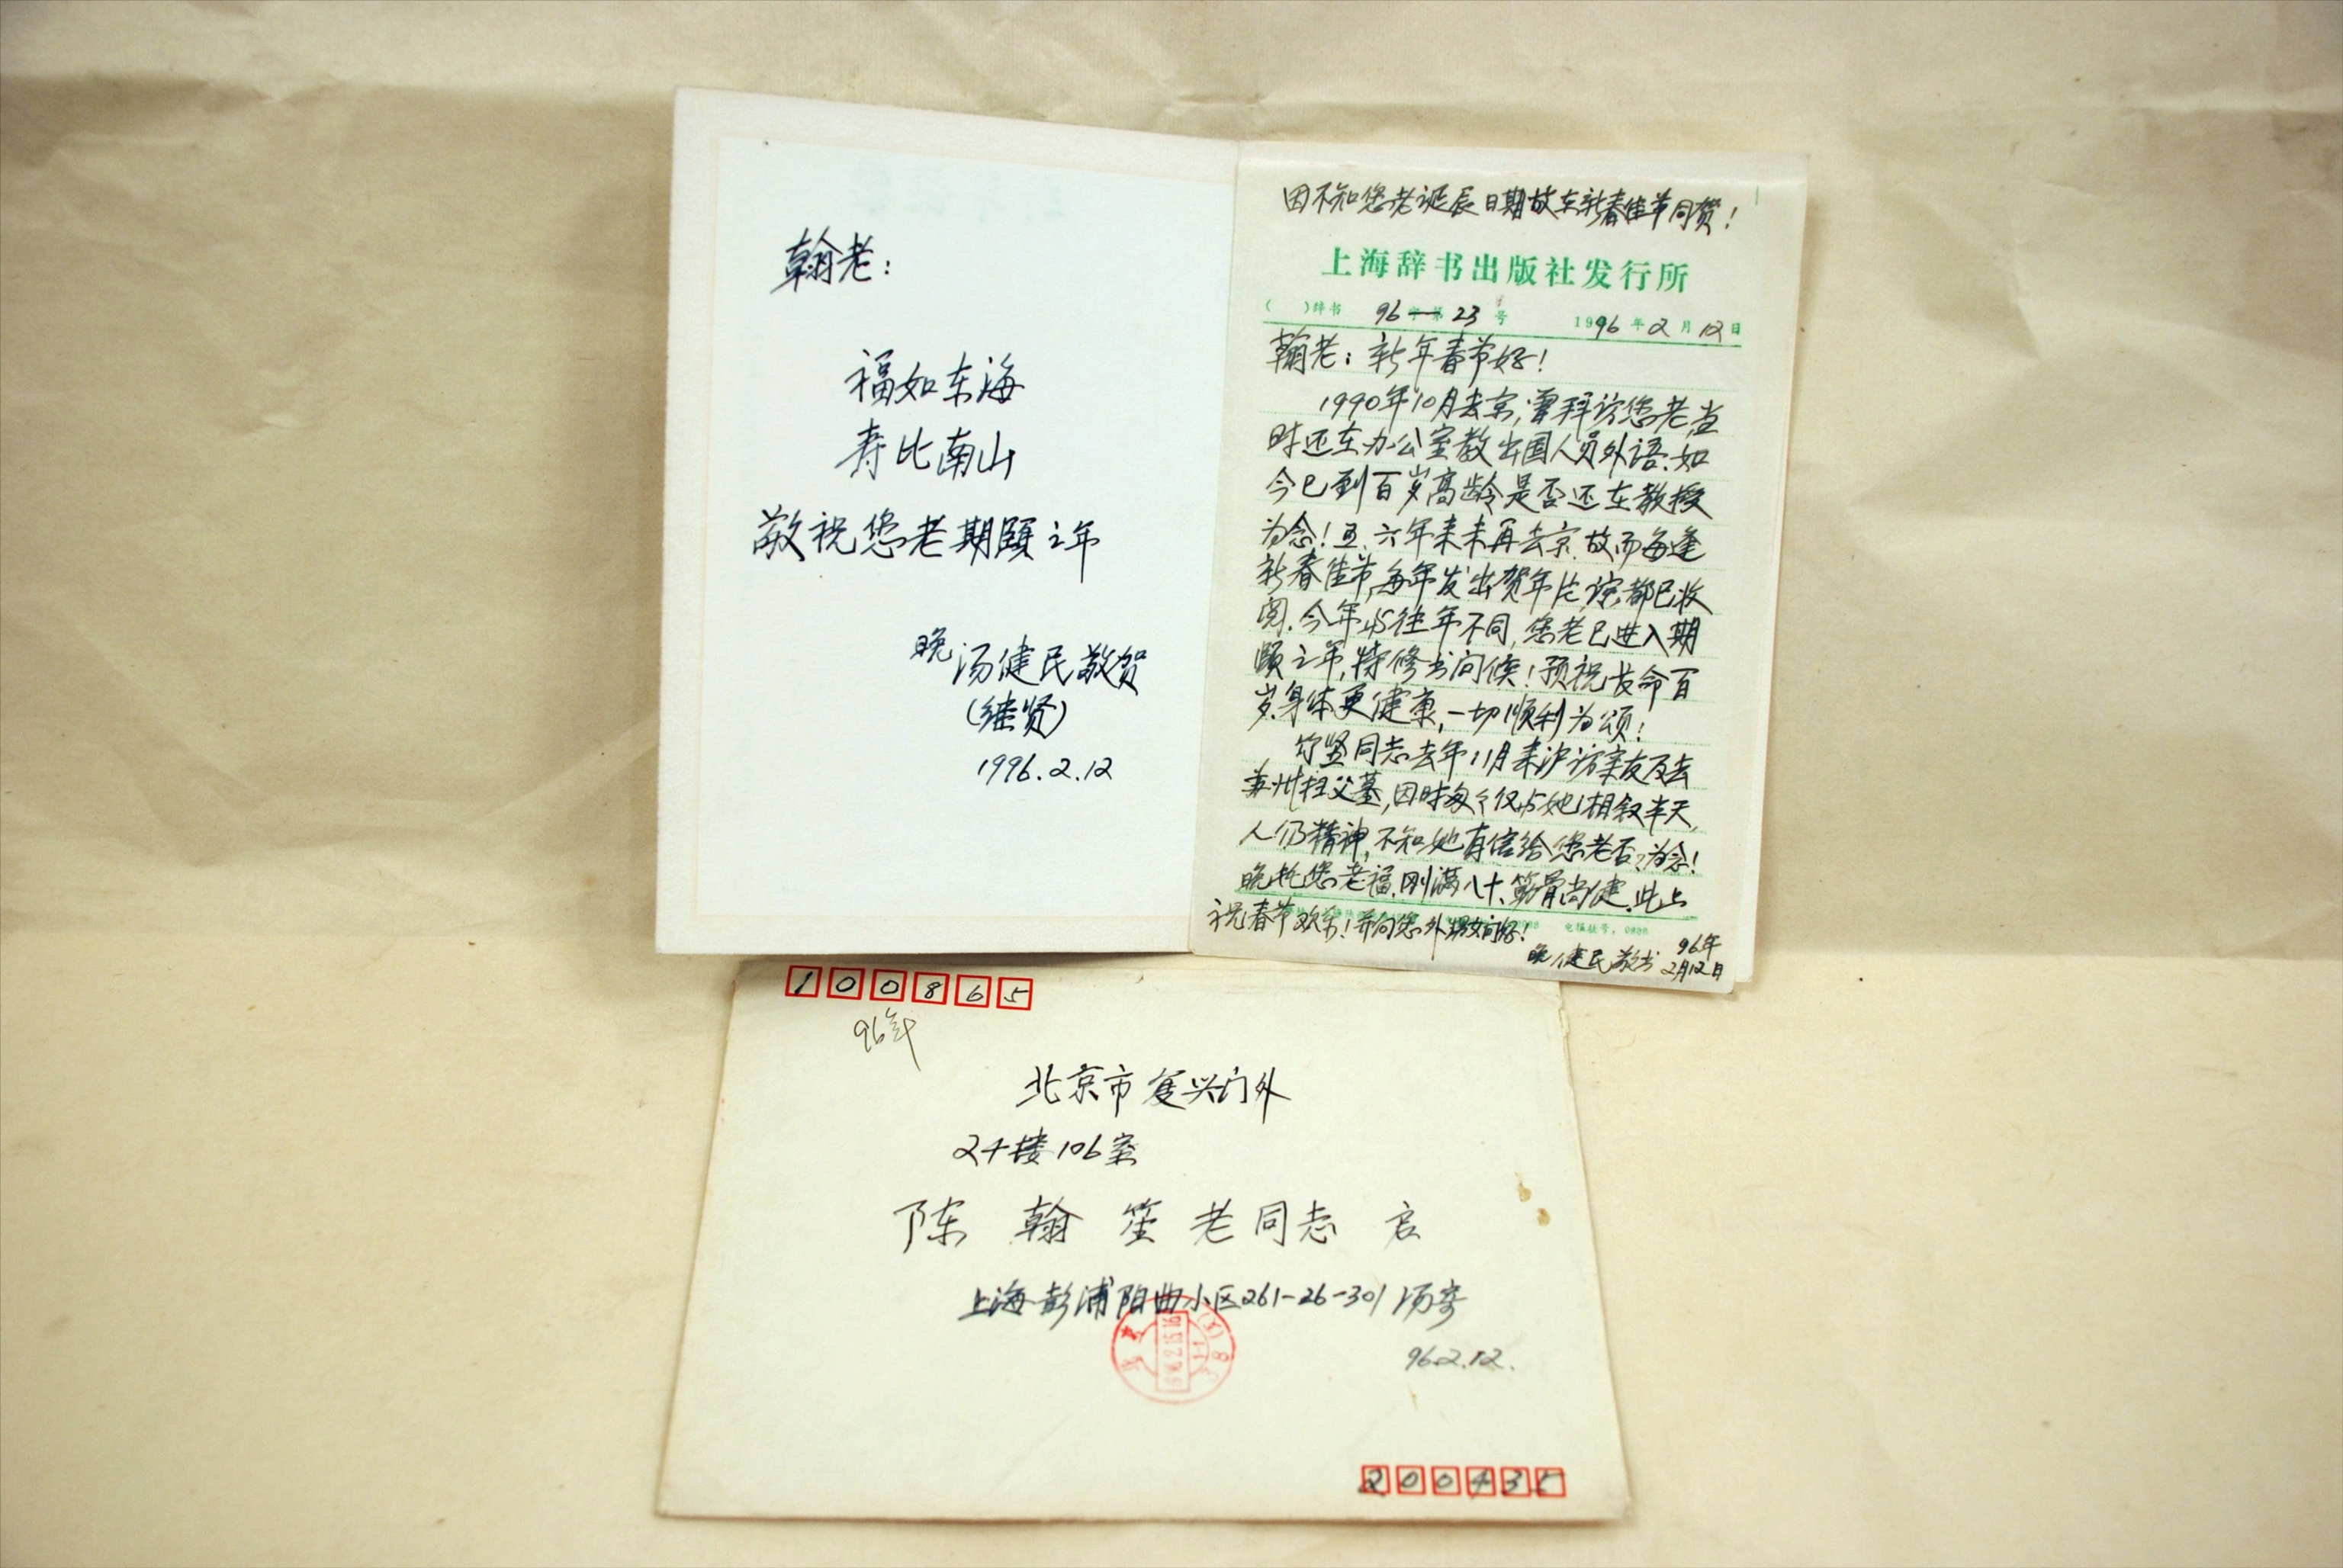 翰老：
福如东海
寿比南山
敬祝您老期颐之年
晚 汤健民敬贺
(继贤)
1996.2.12
因不知您老诞辰日期故在新春佳节同贺！
上海辞书出版社发行所
( )辞书 96字第23号 1996年2月12日
翰老：新年春节好！
1990年10月去京，曾拜访您老，当
时还在办公室教出国人员外语.如
今已到百岁高龄是否还在教授
为念！五、六年来未再去京.故而每逢
新春佳节,每年发出贺年片,谅都已收
阅.今年与往年不同,您老已进入期
颐之年,特修书问候！预祝长命百
岁.身体更健康,一切顺利为颂！
竹坚同志去年11月来沪访亲友及去
苏州扫父墓,因时匆匆仅与她相叙半天,
人仍精神,不知她有信给您老否?为念！
晚托您老福.刚满八十.筋骨尚健.此上
祝春节欢乐！并向您外甥女问好！
电报挂号：
晚 健民敬书 96年
2月12日
100865
96年
北京市复兴门外
24楼106室
陈翰笙老同志 启
上海彭浦阳曲小区261-26-301 汤寄
96.2.12.
200435